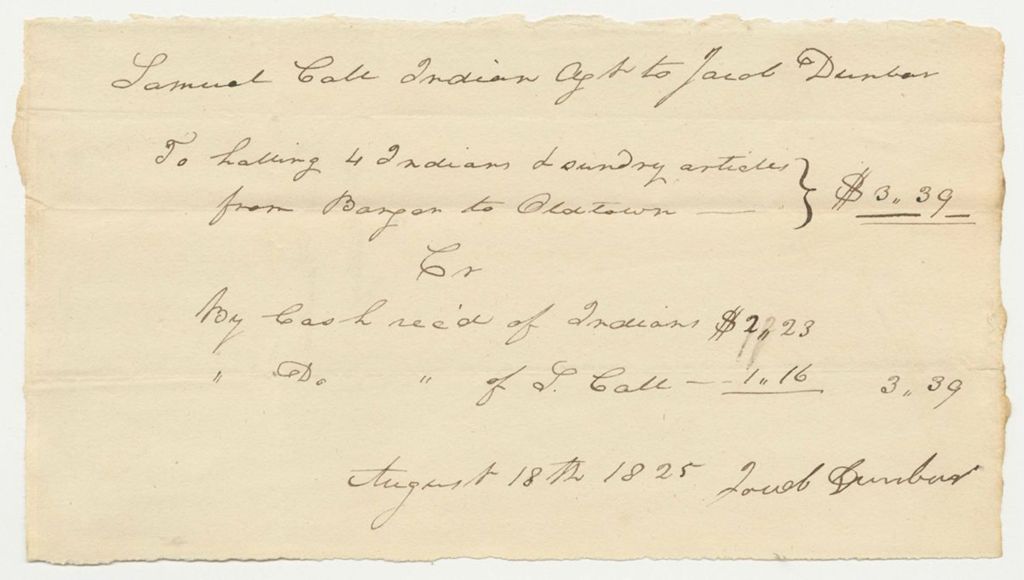 Samuel Call Indian Agt to Jacob Dunbar
To halling 4 Indians & sundry articles
from Bangor to Oldtown — } $3,,39
Cr
By Cash rec'd of Indians $2,,23
" Do " of S. Call — 1,,16 3,,39
August 18th 1825 Jacob Dunbar